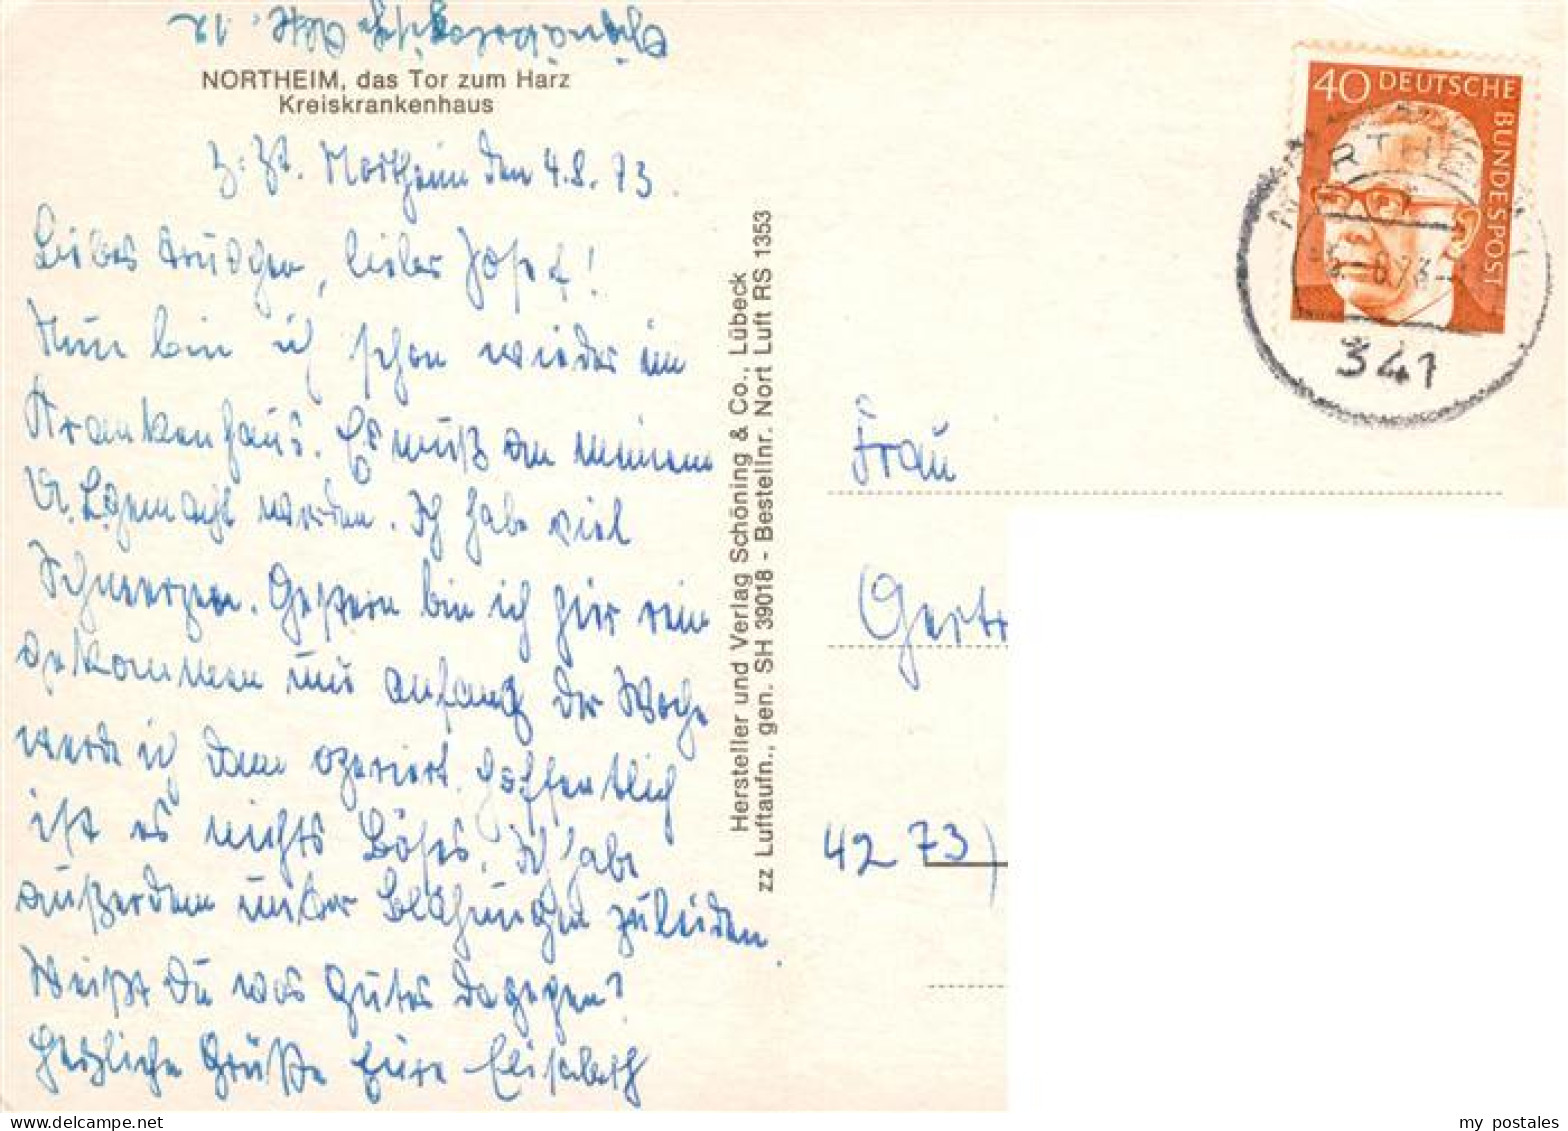 NORTHEIM, das Tor zum Harz
Kreiskrankenhaus
z. Zt. Northeim den 4.8.73.
Liebes Trudchen, lieber Josef!
Nun bin ich schon wieder im
Krankenhaus. Es muß an meinem
gemacht werden. Ich habe viel
Schmerzen. Gestern bin ich hier rein
gekommen und anfang der Woche
werde ich dann operiert. Hoffentlich
ist es nichts Böses. Ich habe
außerdem unter Blähungen zuleiden.
Weißt Du was Gutes dagegen?
Herzliche Grüße Eure Elisabeth
Hersteller und Verlag Schöning & Co., Lübeck
zz Luftaufn., gen. SH 39018 - Bestellnr. Nort Luft RS 1353
40 DEUTSCHE BUNDESPOST
NORTHEIM
341
Frau
Gertr
42 73)
my postales